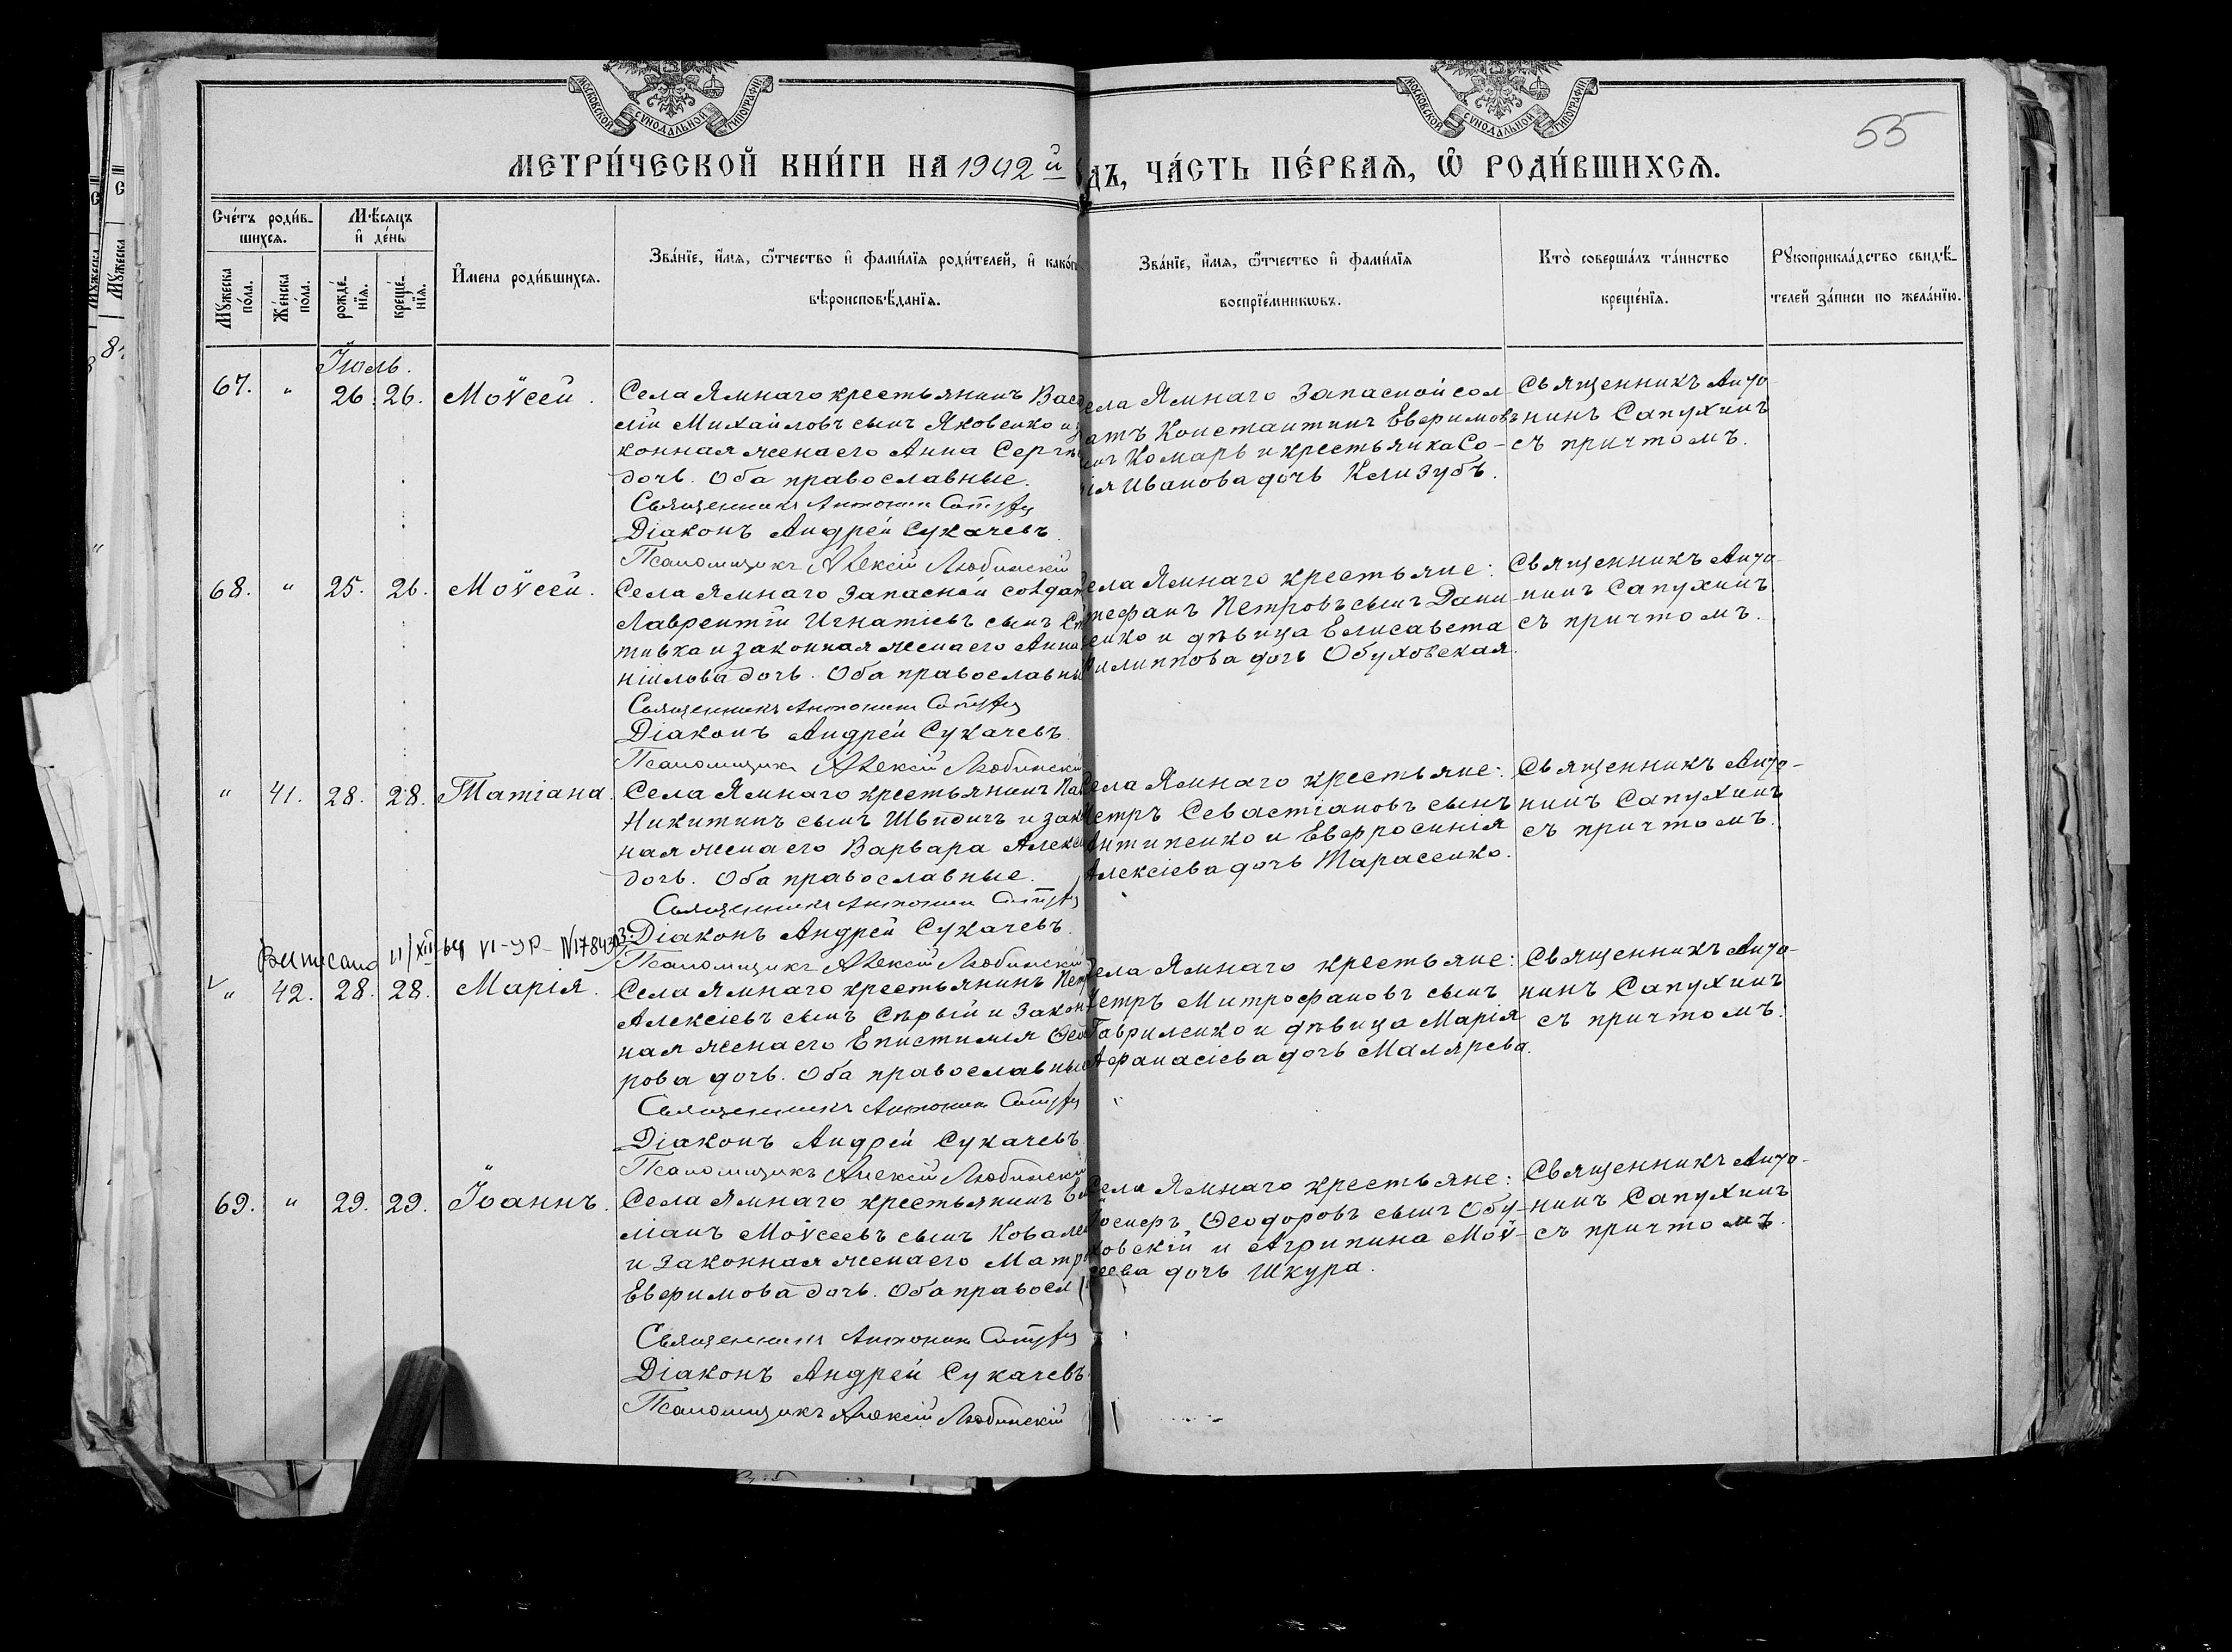 МОСКОВСКОЙ СѴНОДАЛЬНОЙ ТИПОГРАФІИ
МОСКОВСКОЙ СѴНОДАЛЬНОЙ ТИПОГРАФІИ
55
МЕТРИ́ЧЕСКОЙ КНИ́ГИ НА 1902 й
ДЪ, ЧА́СТЬ ПЕ́РВАѦ, Ѡ҆ РОДИ́ВШИХСѦ.
Сче́тъ роди́в-
шихсѧ.
Мѣсѧцъ
и҆ де́нь
И҆мена роди́вшихсѧ.
Зва́нїе, и҆́мѧ, ѻ҆́тчество и҆ фами́лїѧ роди́телей, и҆ како́г
вѣроисповѣ́данїѧ.
Зва́нїе, и҆́мѧ, ѻ҆́тчество и҆ фами́лїѧ
воспрїе́мниковъ.
Кто̀ соверша́лъ та́инство
креще́нїѧ.
Рꙋкоприкла́дство свидѣ́-
телей за́писи по жела́нїю.
Мꙋжеска
по́ла.
Же́нска
по́ла.
рожде́-
нїѧ.
креще́-
нїѧ.
Іюль.
67. " 26. 26. Моѵсей.
Села Ямнаго крестьянинъ Васи
лій Михайловъ сынъ Яковенко и
конная жена его Анна Сергѣ
дочь. Оба православные.
Священникъ Антонин
Діаконъ Андрей Сукачевъ
Псаломщикъ Алексій Любинскій
ела Ямнаго запасной сол
атъ Константинъ Евфимовъ
Комарь и крестьянка Со-
ія Иванова дочь Кли зубъ.
Священникъ Анто-
нинъ Сапухинъ
съ причтомъ.
68. " 25. 26. Моѵсей.
Села Ямнаго запасной солдат
Лаврентій Игнатіевъ сынъ
тивка и законная жена его Анна
ніилова дочь. Оба православны
Священникъ Антонин
Діаконъ Андрей Сукачевъ
Псаломщикъ Алексій Любинскій
ела Ямнаго крестьяне:
тефанъ Петровъ сынъ Дани
енко и дѣвица Елисавета
илиппова дочь Обуховская.
Священникъ Анто-
нинъ Сапухинъ
съ причтомъ.
" 41. 28. 28. Татіана.
Села Ямнаго крестьянинъ Па
Никитинъ сынъ Швидичъ и зак
ная жена его Варвара Алекс
дочь. Оба православные.
Священникъ Антонин
Діаконъ Андрей Сукачевъ.
Псаломщикъ Алексій Любинскій
ела Ямнаго крестьяне:
етръ Севастіановъ сынъ
Антипенко и Евфросинія
Алексіева дочь Тарасенко.
Священникъ Анто-
нинъ Сапухинъ
съ причтомъ.
Выписано
VI-УР- N178
" 42. 28. 28. Марія.
Села Ямнаго крестьянинъ Пет
Алексіевъ сынъ Сѣрый и закон
ная жена его Епистимія Ѳео
рова дочь. Оба православны
Священникъ Антонин
Діаконъ Андрей Сукачевъ
Псаломщикъ Алексій Любинскій
ела Ямнаго крестьяне:
Петръ Митрофановъ сынъ
Гавриленко и дѣвица Марія
Афанасіева дочь Малярева.
Священникъ Анто-
нинъ Сапухинъ
съ причтомъ.
69. " 29. 29. Іоаннъ.
Села Ямнаго крестьянинъ
ліанъ Моѵсеевъ сынъ Ковале
и законная жена его Матр
Евфимова дочь. Оба правосл
Священникъ Антонин
Діаконъ Андрей Сукачевъ
Псаломщикъ Алексій Любинскій
Села Ямнаго крестьяне:
Іосифъ Ѳеодоровъ сынъ Обу-
ховскій и Агрипина Моѵ-
сеева дочь Шкура.
Священникъ Анто-
нинъ Сапухинъ
съ причтомъ.